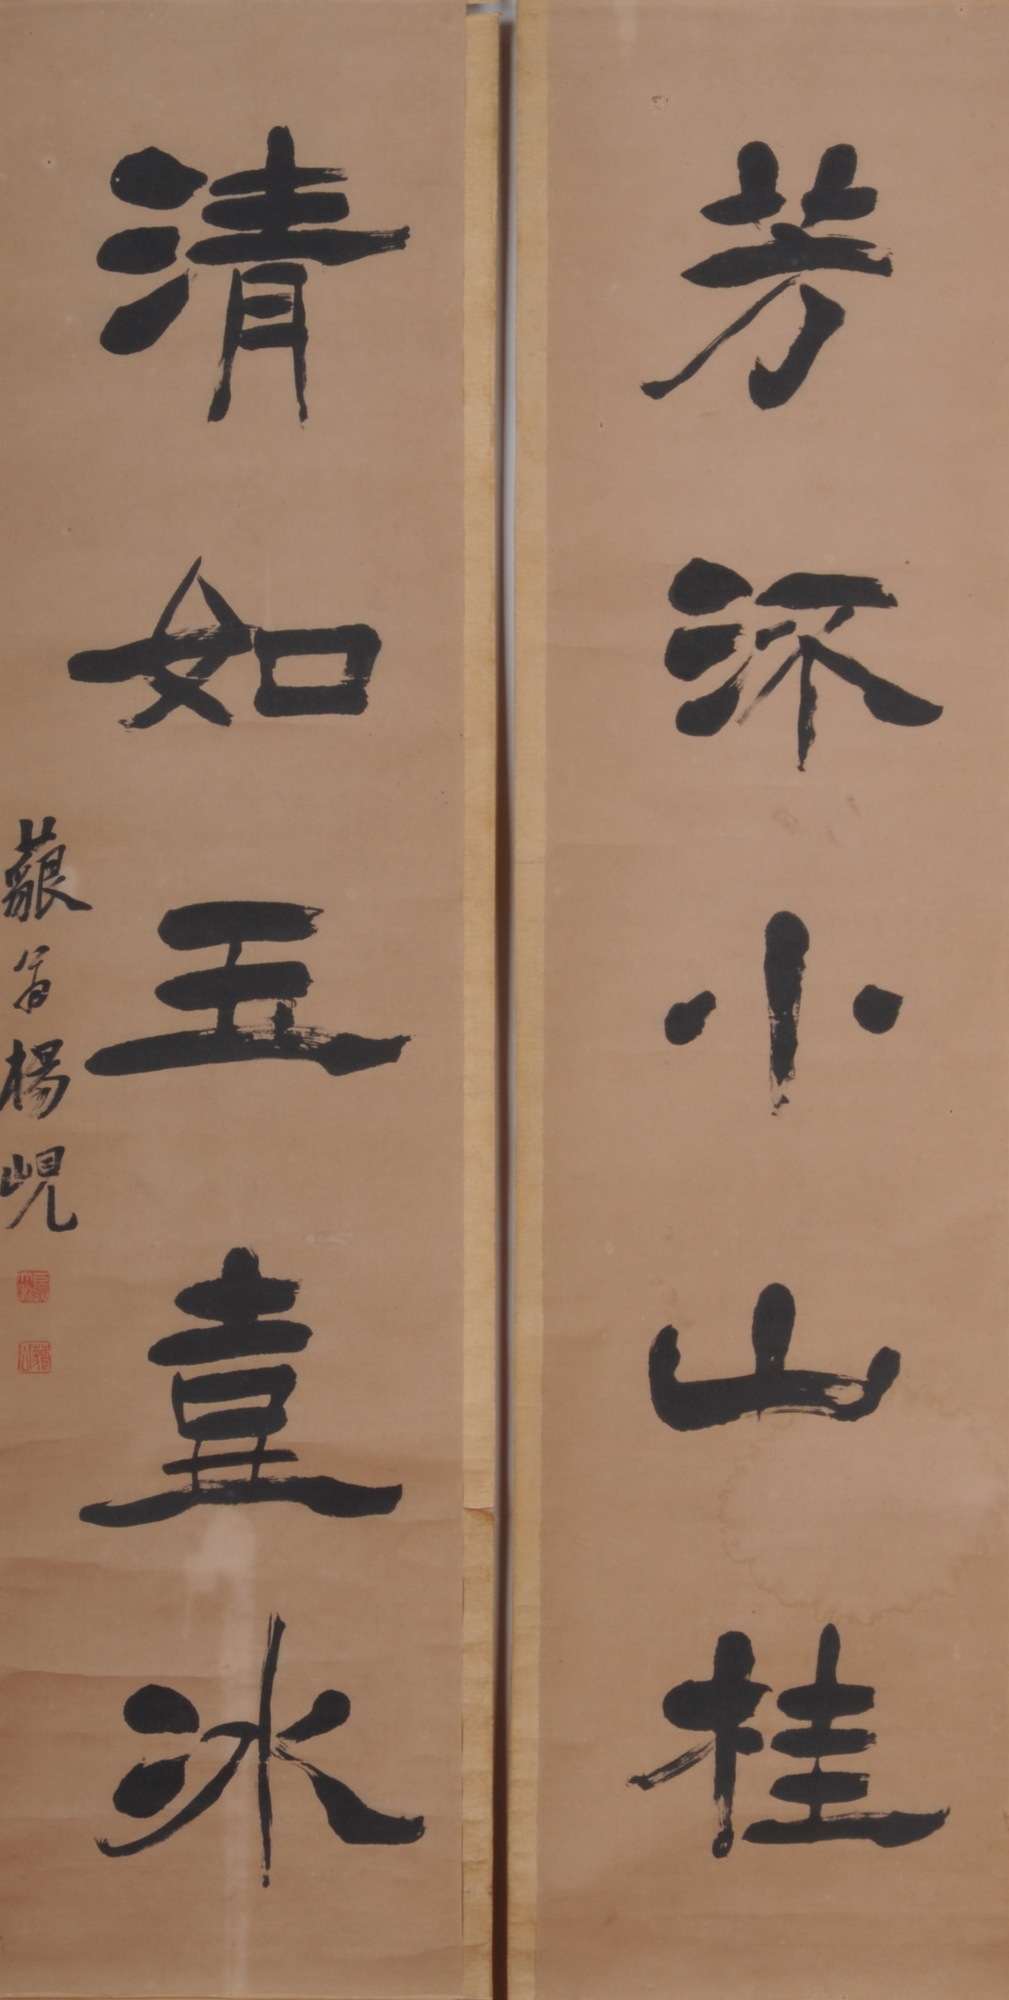 芳沠小山桂
清如玉壺冰
藐翁楊峴